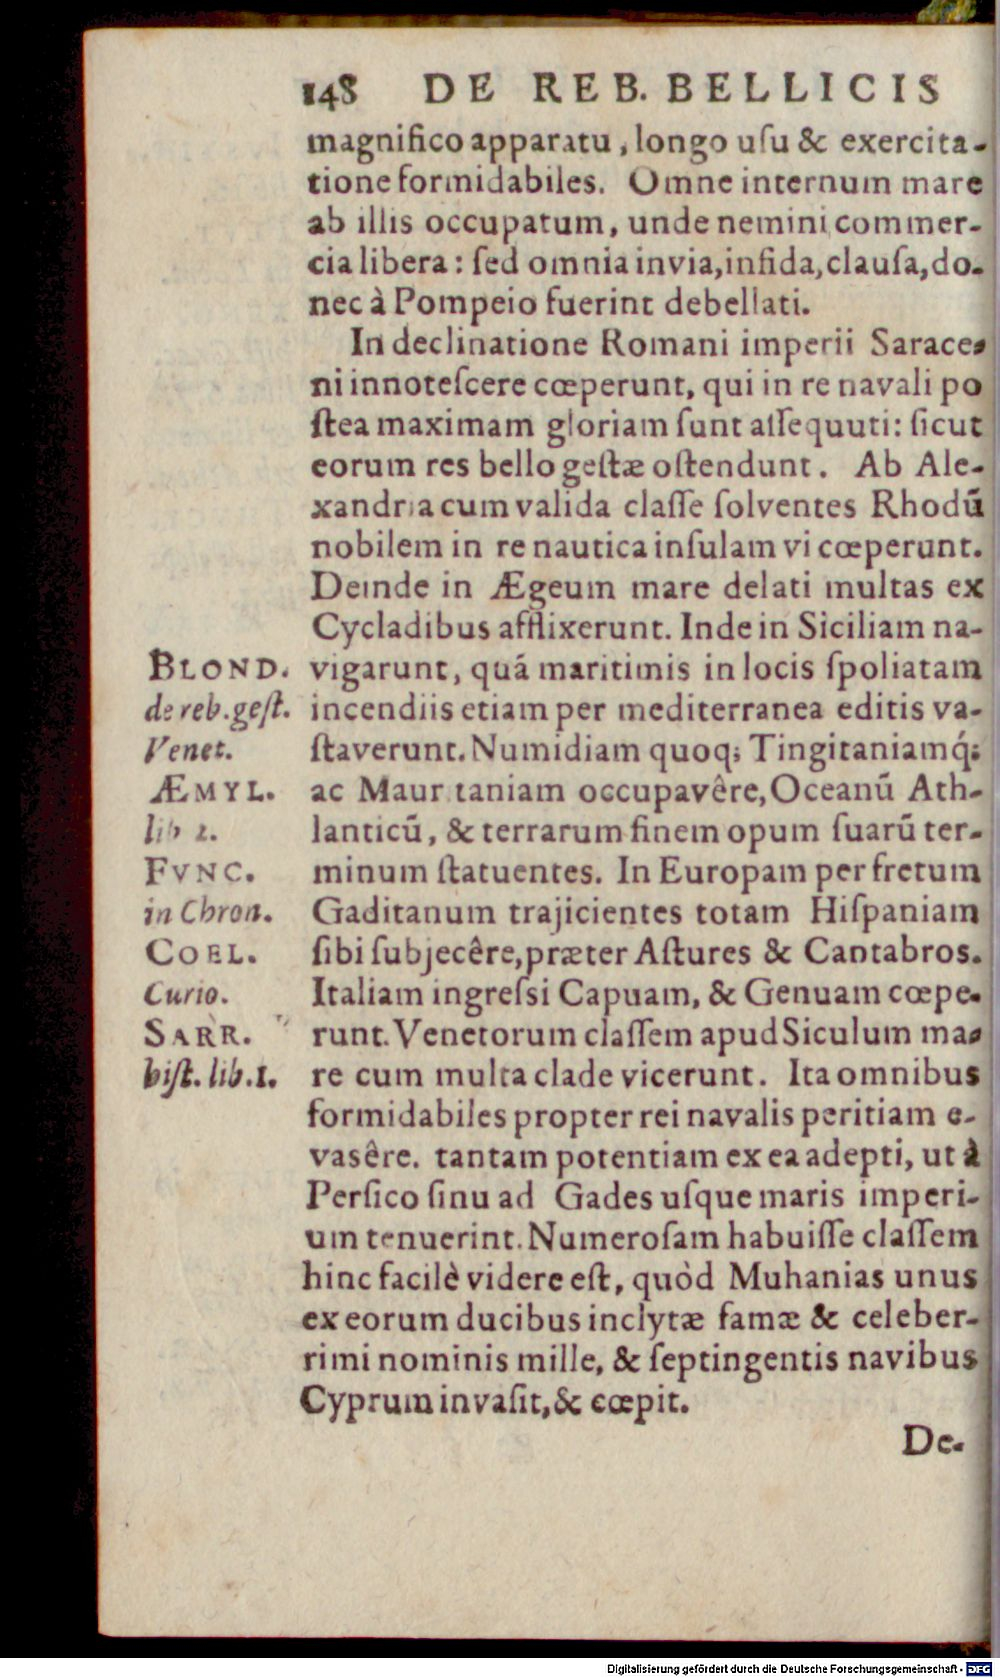 148 DE REB. BELLICIS
magnifico apparatu, longo uſu & exercita-
tione formidabiles. Omne internum mare
ab illis occupatum, unde nemini commer-
cia libera: ſed omnia invia, infida, clauſa, do-
nec à Pompeio fuerint debellati.
In declinatione Romani imperii Sarace-
ni innoteſcere cœperunt, qui in re navali po
ſtea maximam gloriam ſunt aſſequuti: ſicut
eorum res bello geſtæ oſtendunt. Ab Ale-
xandria cum valida claſſe ſolventes Rhodũ
nobilem in re nautica inſulam vi cœperunt.
Deinde in Ægeum mare delati multas ex
Cycladibus afflixerunt. Inde in Siciliam na-
vigarunt, quá maritimis in locis ſpoliatam
incendiis etiam per mediterranea editis va-
ſtaverunt. Numidiam quoq; Tingitaniamq́;
ac Maur taniam occupavêre, Oceanũ Ath-
lanticũ, & terrarum finem opum ſuarũ ter-
minum ſtatuentes. In Europam per fretum
Gaditanum trajicientes totam Hiſpaniam
ſibi ſubjecêre, præter Aſtures & Cantabros.
Italiam ingreſsi Capuam, & Genuam cœpe-
runt. Venetorum claſſem apud Siculum ma-
re cum multa clade vicerunt. Ita omnibus
formidabiles propter rei navalis peritiam e-
vasêre. tantam potentiam ex ea adepti, ut à
Perſico ſinu ad Gades uſque maris imperi-
um tenuerint. Numeroſam habuiſſe claſſem
hinc facilè videre eſt, quòd Muhanias unus
ex eorum ducibus inclytæ famæ & celeber-
rimi nominis mille, & ſeptingentis navibus
Cyprum invaſit, & cœpit.
De-
BLOND.
de reb. geſt.
Venet.
ÆMYL.
lib 2.
FVNC.
in Chron.
COEL.
Curio.
SARR.
hiſt. lib. 1.
Digitalisierung gefördert durch die Deutsche Forschungsgemeinschaft - DFG